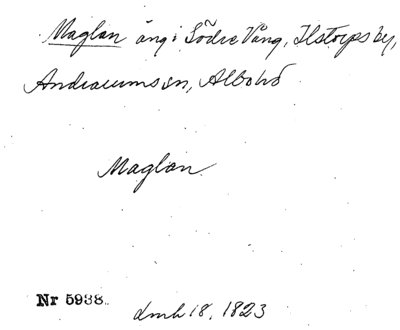 Maglan äng i Södre Vång, Ilstorps by,
Andrarums sn, Albo hd
Maglan
Nr 5938.
dmh 18, 1823